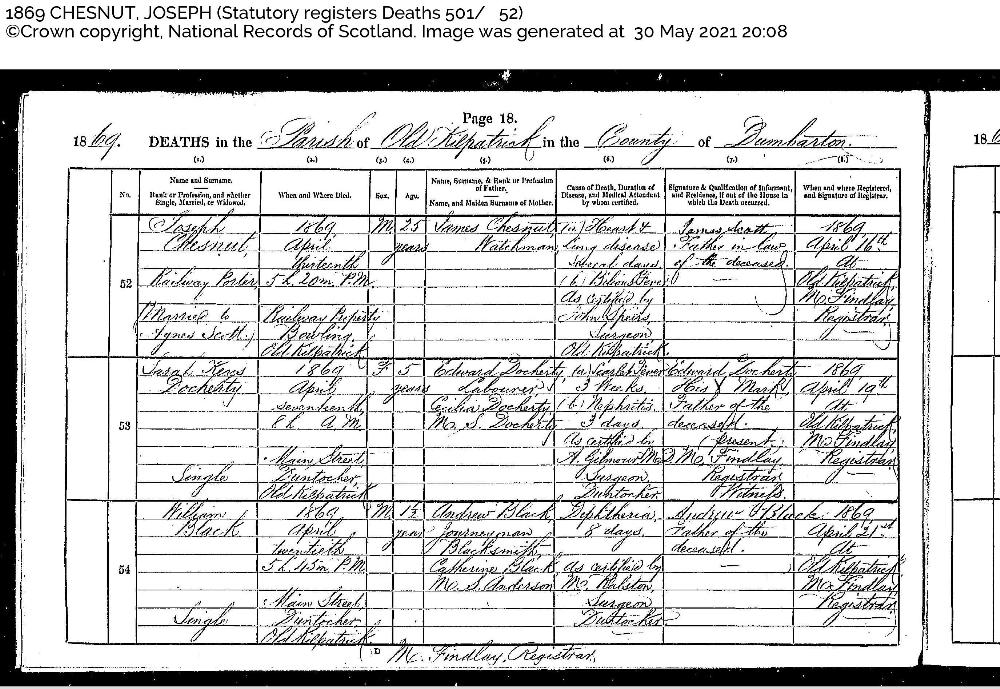 1869 CHESNUT, JOSEPH (Statutory registers Deaths 501/ 52)
©Crown copyright, National Records of Scotland. Image was generated at 30 May 2021 20:08
Page 18.
1869. DEATHS in the Parish of Old Kilpatrick in the County of Dumbarton.
(1.) (2.) (3.) (4.) (5.) (6.) (7.) (8.)
No.
Name and Surname.
Rank or Profession, and whether
Single, Married, or Widowed.
When and Where Died.
Sex.
Age.
Name, Surname, & Rank or Profession
of Father.
Name, and Maiden Surname of Mother.
Cause of Death, Duration of
Disease, and Medical Attendant
by whom certified.
Signature & Qualification of Informant,
and Residence, if out of the House in
which the Death occurred.
When and where Registered,
and Signature of Registrar.
52
Joseph
Chesnut
Railway Porter
(Married to
Agnes Scott)
1869
April
thirteenth
5 h. 20m. P.M.
Railway Property
Bowling
Old Kilpatrick
M.
25
years
James Chesnut
Watchman
(a) Heart &
lung disease
several days
(b) Bilious Fever
As certified by
John Speirs
Surgeon
Old Kilpatrick
James Scott
Father in law
of the deceased.
1869
April 16th
At
Old Kilpatrick
Mc. Findlay
Registrar
53
Docherty
Single
1869
April
seventeenth
8 h. A.M.
Main Street
Duntocher
Old Kilpatrick
F.
5
years
Edward Docherty
Labourer
Cecilia Docherty
M. S. Docherty
(a) Scarlet Fever
3 Weeks
(b) Nephritis
3 days
As certified by
A. Gilmour M.D.
Surgeon
Duntocher
Edward Docherty
His X Mark
Father of the
deceased.
(present)
Mc. Findlay
Registrar
Witness.
1869
April 19th
At
Old Kilpatrick
Mc. Findlay
Registrar
54
William
Black
Single
1869
April
twentieth
5 h. 45m P.M.
Main Street
Duntocher
Old Kilpatrick
M.
1½
year
Andrew Black
Journeyman
Blacksmith
Catherine Black
M. S. Anderson
Diphtheria
8 days.
As certified by
Mc. Ralston
Surgeon
Duntocher
Andrew Black
Father of the
deceased.
1869
April 21st
At
Old Kilpatrick
Mc. Findlay
Registrar
D
Mc. Findlay, Registrar.
186